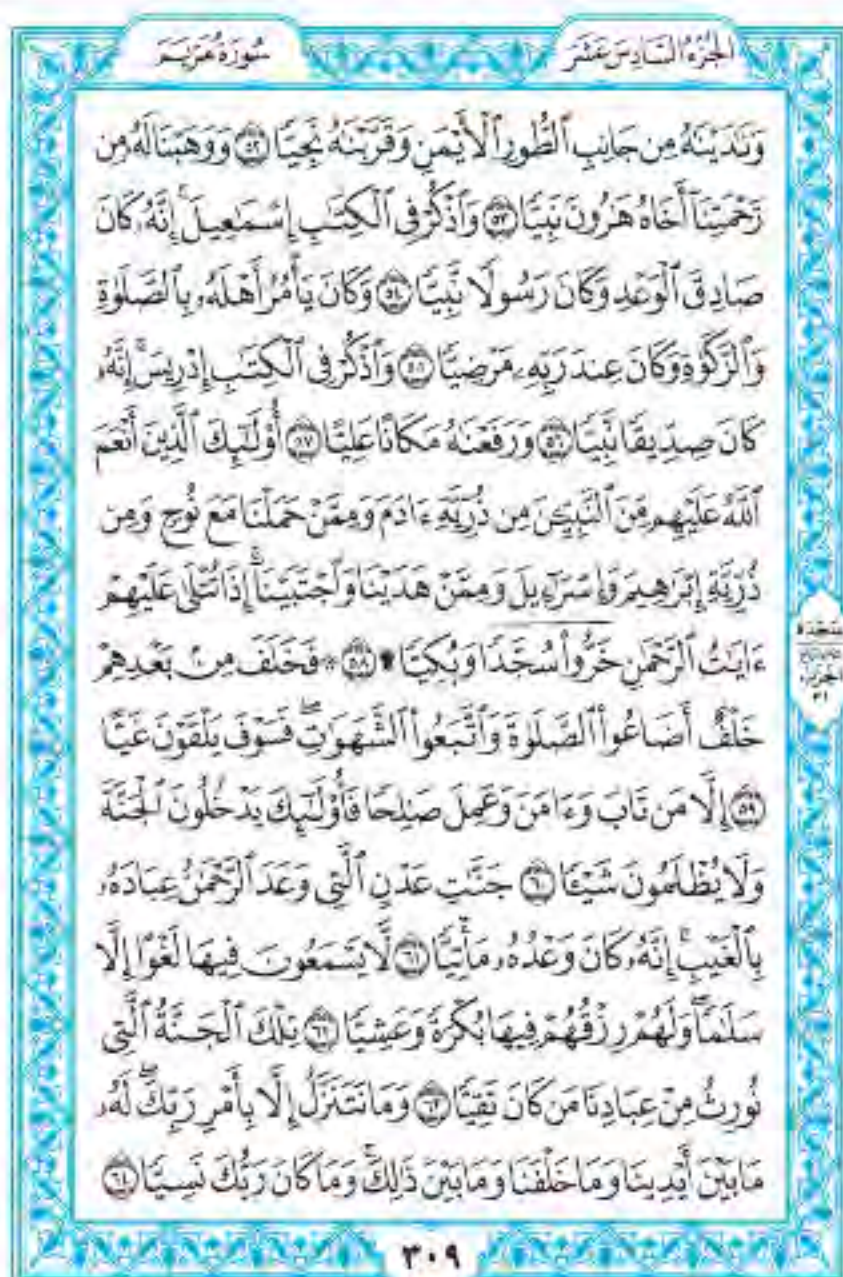 الجزء السادس عشر
سورة مريم
وَنَٰدَيْنَٰهُ مِن جَانِبِ ٱلطُّورِ ٱلْأَيْمَنِ وَقَرَّبْنَٰهُ نَجِيًّا ٥٢ وَوَهَبْنَا لَهُۥ مِن
رَّحْمَتِنَآ أَخَاهُ هَٰرُونَ نَبِيًّا ٥٣ وَٱذْكُرْ فِى ٱلْكِتَٰبِ إِسْمَٰعِيلَ ۚ إِنَّهُۥ كَانَ
صَادِقَ ٱلْوَعْدِ وَكَانَ رَسُولًا نَّبِيًّا ٥٤ وَكَانَ يَأْمُرُ أَهْلَهُۥ بِٱلصَّلَوٰةِ
وَٱلزَّكَوٰةِ وَكَانَ عِندَ رَبِّهِۦ مَرْضِيًّا ٥٥ وَٱذْكُرْ فِى ٱلْكِتَٰبِ إِدْرِيسَ ۚ إِنَّهُۥ
كَانَ صِدِّيقًا نَّبِيًّا ٥٦ وَرَفَعْنَٰهُ مَكَانًا عَلِيًّا ٥٧ أُو۟لَٰٓئِكَ ٱلَّذِينَ أَنْعَمَ
ٱللَّهُ عَلَيْهِم مِّنَ ٱلنَّبِيِّۦنَ مِن ذُرِّيَّةِ ءَادَمَ وَمِمَّنْ حَمَلْنَا مَعَ نُوحٍ وَمِن
ذُرِّيَّةِ إِبْرَٰهِيمَ وَإِسْرَٰٓءِيلَ وَمِمَّنْ هَدَيْنَا وَٱجْتَبَيْنَآ ۚ إِذَا تُتْلَىٰ عَلَيْهِمْ
ءَايَٰتُ ٱلرَّحْمَٰنِ خَرُّوا۟ سُجَّدًا وَبُكِيًّا ۩ ٥٨ ۞ فَخَلَفَ مِنۢ بَعْدِهِمْ
خَلْفٌ أَضَاعُوا۟ ٱلصَّلَوٰةَ وَٱتَّبَعُوا۟ ٱلشَّهَوَٰتِ ۖ فَسَوْفَ يَلْقَوْنَ غَيًّا
٥٩ إِلَّا مَن تَابَ وَءَامَنَ وَعَمِلَ صَٰلِحًا فَأُو۟لَٰٓئِكَ يَدْخُلُونَ ٱلْجَنَّةَ
وَلَا يُظْلَمُونَ شَيْـًٔا ٦٠ جَنَّٰتِ عَدْنٍ ٱلَّتِى وَعَدَ ٱلرَّحْمَٰنُ عِبَادَهُۥ
بِٱلْغَيْبِ ۚ إِنَّهُۥ كَانَ وَعْدُهُۥ مَأْتِيًّا ٦١ لَّا يَسْمَعُونَ فِيهَا لَغْوًا إِلَّا
سَلَٰمًا ۖ وَلَهُمْ رِزْقُهُمْ فِيهَا بُكْرَةً وَعَشِيًّا ٦٢ تِلْكَ ٱلْجَنَّةُ ٱلَّتِى
نُورِثُ مِنْ عِبَادِنَا مَن كَانَ تَقِيًّا ٦٣ وَمَا نَتَنَزَّلُ إِلَّا بِأَمْرِ رَبِّكَ ۖ لَهُۥ
مَا بَيْنَ أَيْدِينَا وَمَا خَلْفَنَا وَمَا بَيْنَ ذَٰلِكَ ۚ وَمَا كَانَ رَبُّكَ نَسِيًّا ٦٤
سجدة
٣٠٩